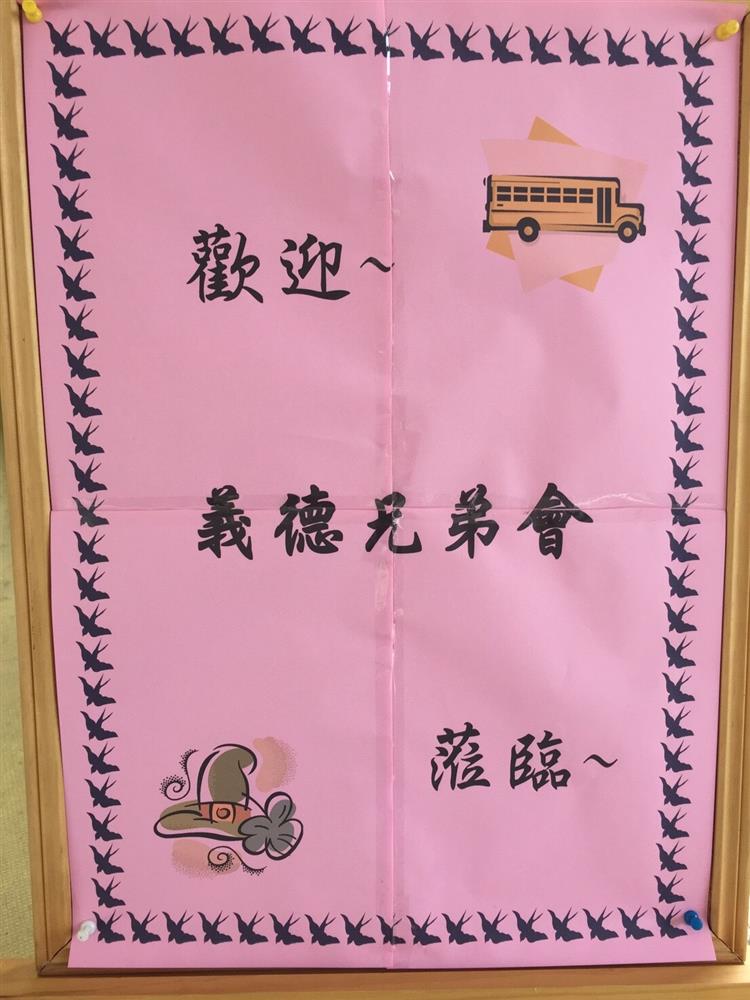 歡迎~
義德兄弟會
蒞臨~